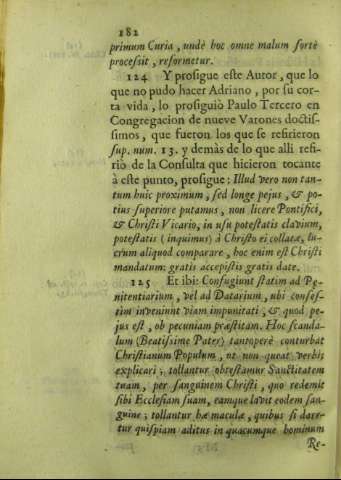 182
primum Curia, undè hoc omne malum fortè
processit, reformetur.
124 Y prosigue este Autor, que lo
que no pudo hacer Adriano, por su cor-
ta vida, lo prosiguiò Paulo Tercero en
Congregacion de nueve Varones doctis-
simos, que fueron los que se refirieron
sup. num. 13. y demàs de lo que alli refi-
riò de la Consulta que hicieron tocante
à este punto, prosigue: Illud vero non tan-
tum huic proximum, sed longe pejus, & po-
tius superiore putamus, non licere Pontifici,
& Christi Vicario, in usu potestatis clavium,
potestatis (inquimus) à Christo ei collatæ, lu-
crum aliquod comparare, hoc enim est Christi
mandatum: gratis accepistis gratis date.
125 Et ibi: Confugiunt statim ad Pœ-
nitentiarium, vel ad Datarium, ubi confes-
tim inveniunt viam impunitati, & quod pe-
jus est, ob pecuniam præstitam. Hoc scanda-
lum (Beatissime Pater) tantoperè conturbat
Christianum Populum, ut non queat verbis
explicari; tollantur obtestamur Sanctitatem
tuam, per sanguinem Christi, quo redemit
sibi Ecclesiam suam, eamque lavit eodem san-
guine; tollantur hæ maculæ, quibus si dare-
tur quispiam aditus in quacumque hominum
Re-